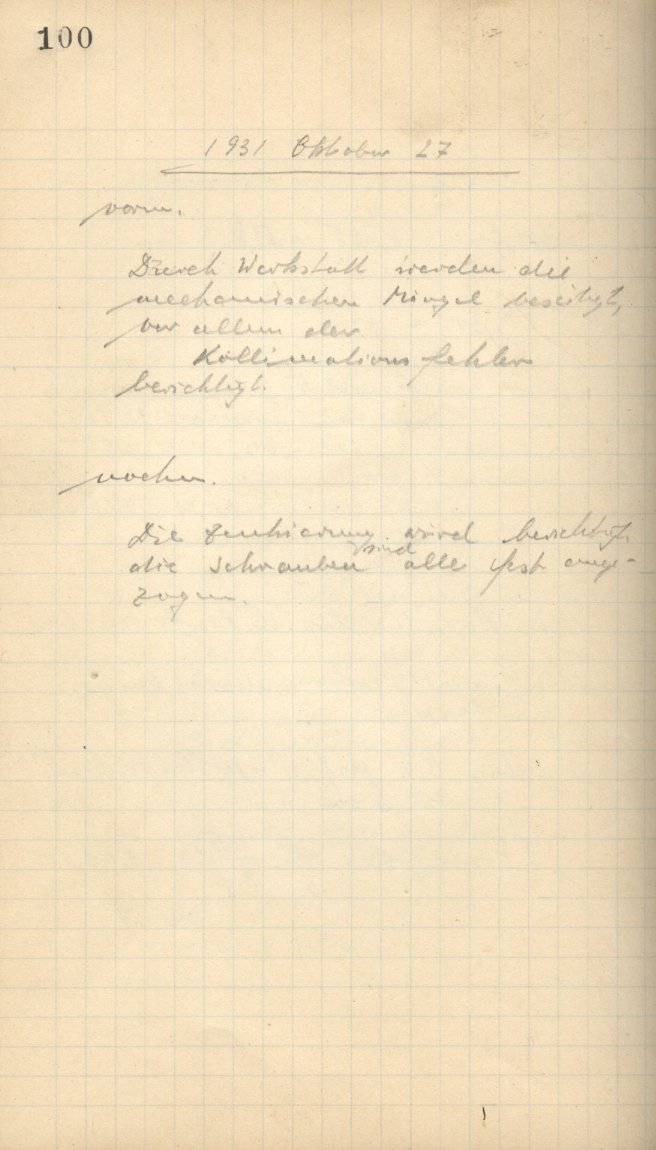 100
1931 Oktober 27
vorm.
Durch Werkstatt werden die
mechanischen Mängel beseitigt,
vor allem der
Kollimationsfehler
berichtigt.
nachm.
Die Zentrierung wird berichtigt
sind
die Schrauben alle fest ange-
zogen.